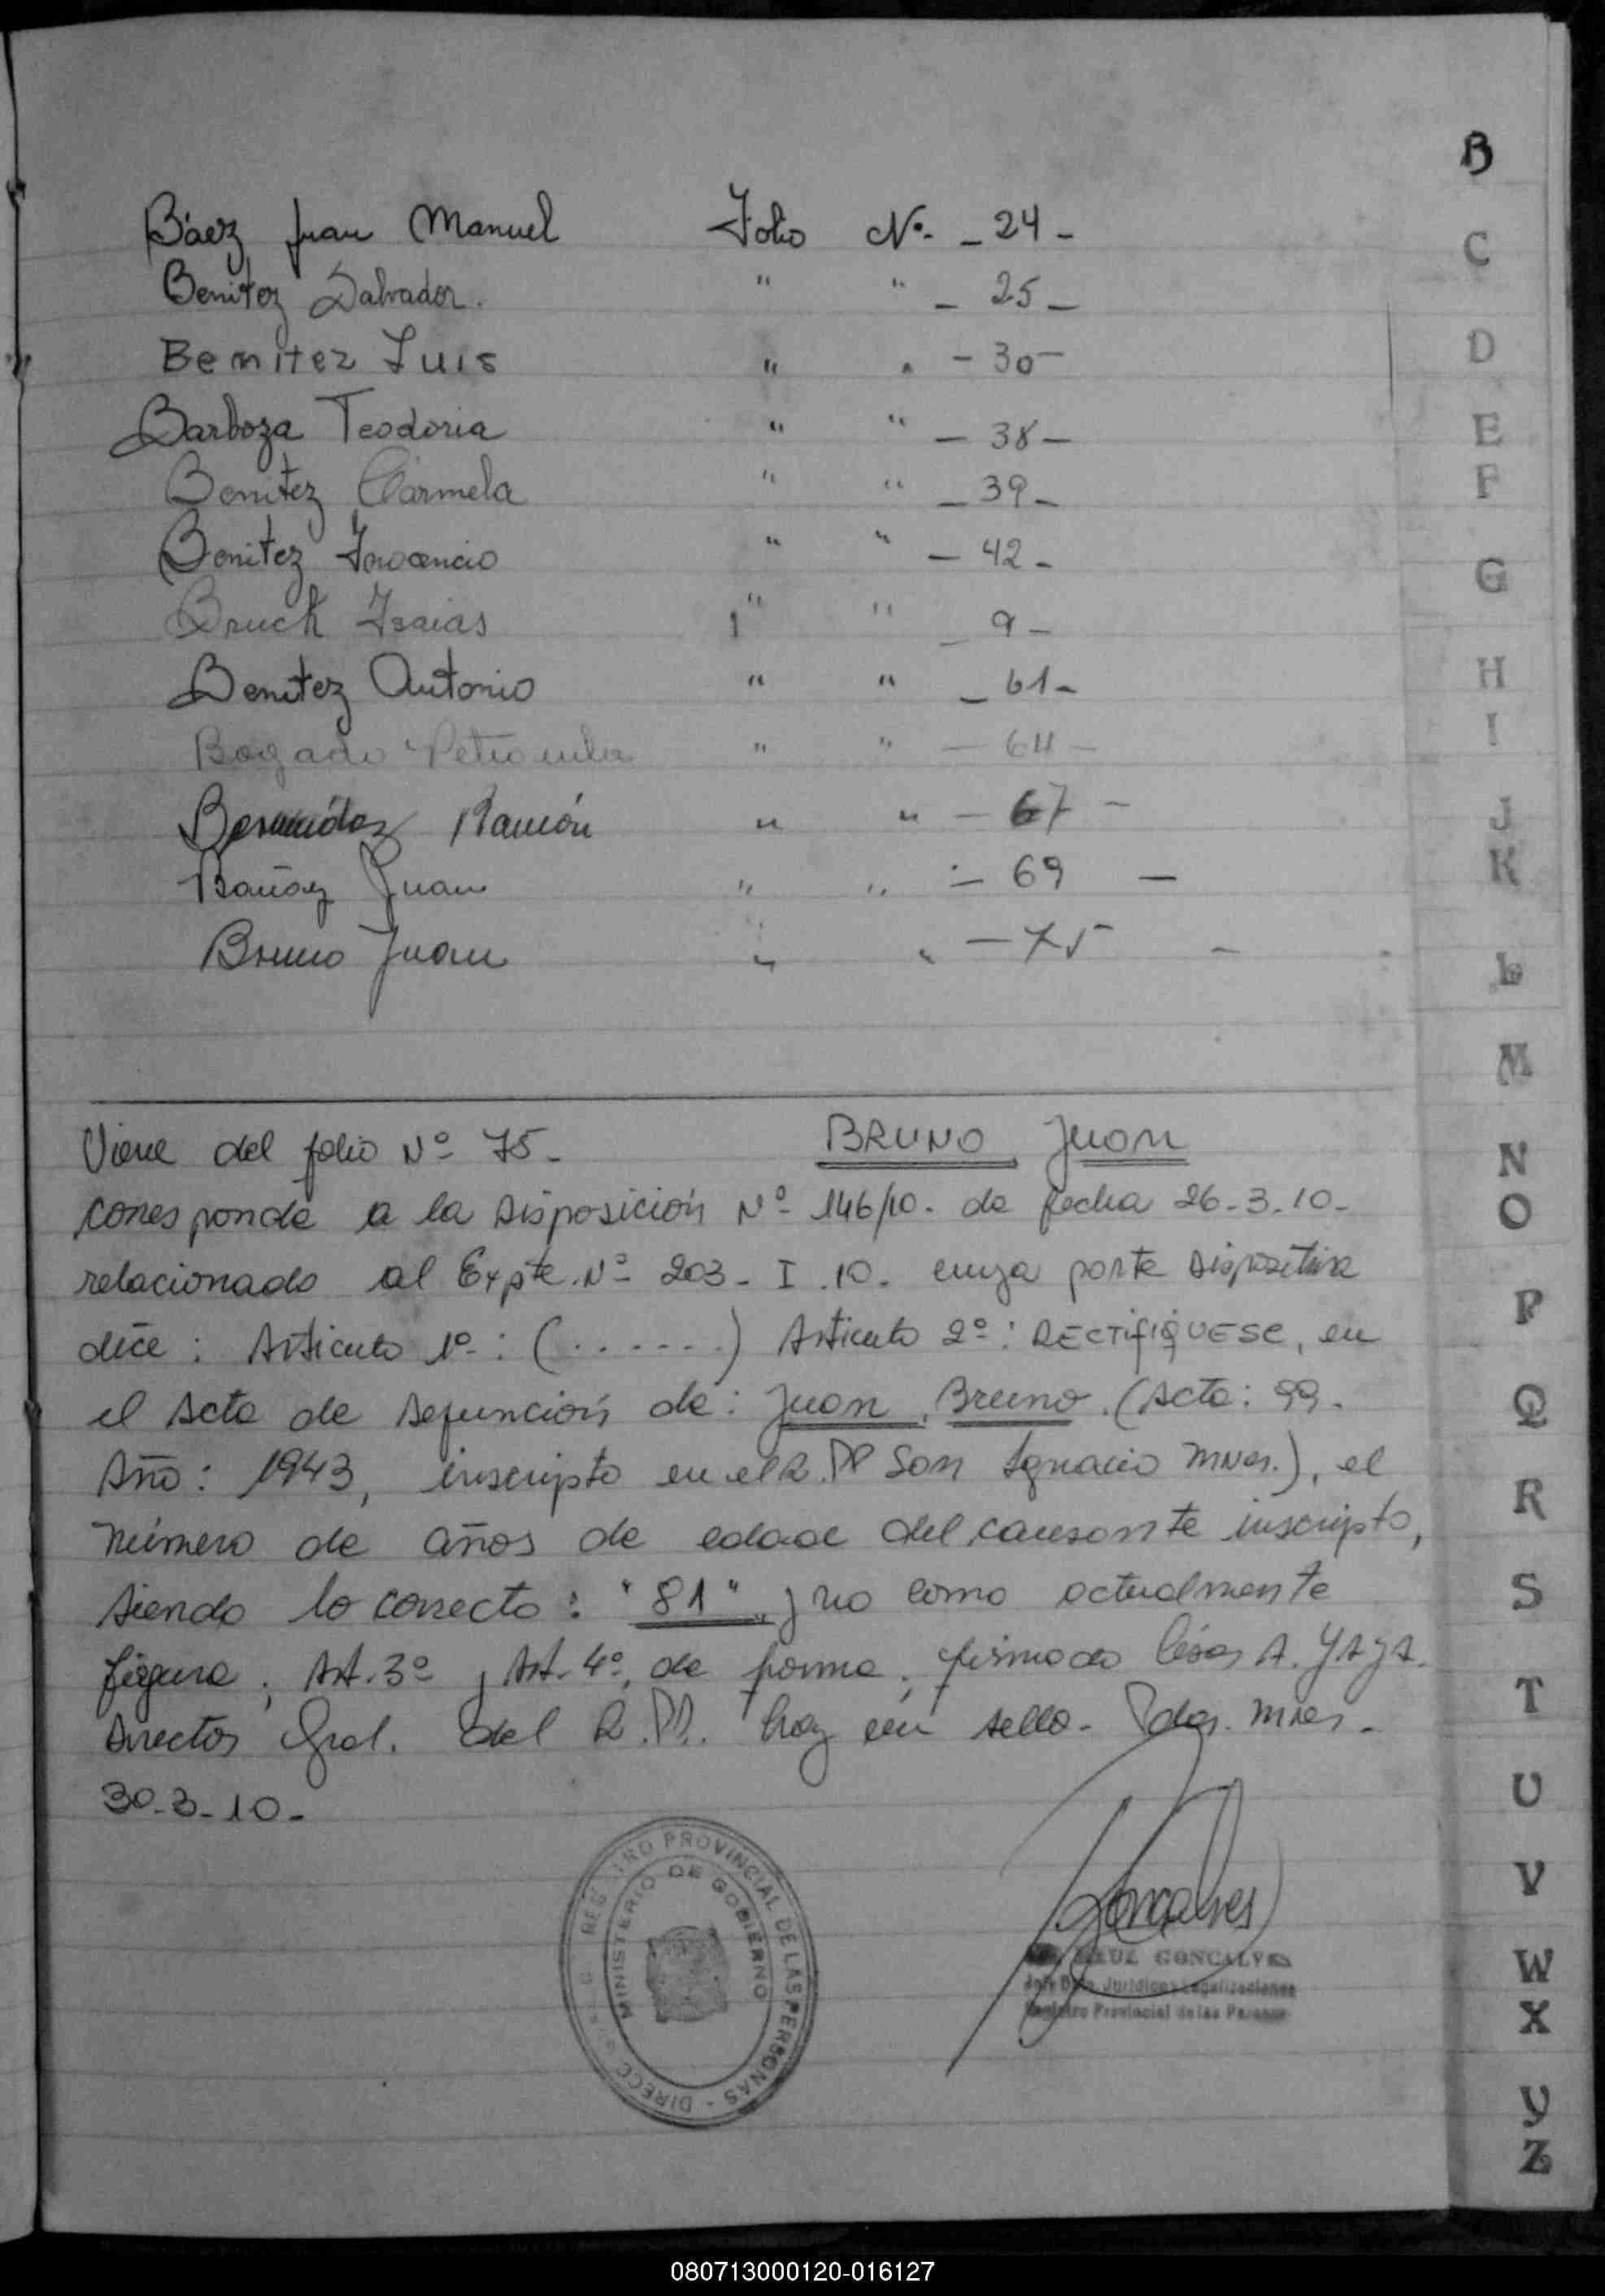 B
Báez Juan Manuel Folio Nº. - 24 -
Benitez Salvador. " " - 25 -
Benitez Luis " " - 30 -
Barboza Teodoria " " - 38 -
Benitez Cármela " " - 39 -
Benitez Inocencio " " - 42 -
Bruck Isaias " " - 9 -
Benitez Antonio " " - 61 -
Bogado Petronila " " - 64 -
Bermúdez Ramón " " - 67 -
Juan " " - 69 -
Bruno Juan " " - 75 -
Viene del folio Nº 75 - BRUNO, Juan
corresponde a la Disposición Nº 146/10. de fecha 26-3-10-
relacionado al Expte. Nº 203 - I . 10 - cuya parte dispositiva
dice : Articulo 1º : (......) Articulo 2º : RECTIFIQUESE, en
el Acta de Defunción de : Juan, Bruno. (Acta : 99.
Año : 1943, inscripto en el R.PP San Ignacio Mnes.), el
número de años de edad del causante inscripto,
siendo lo correcto : "81" y no como actualmente
figura ; Art. 3º y Art. 4º, de forma. firmado César A.
Director Gral. del R.PP. hay un sello - Pdas. Mnes -
30-3-10-
REGISTRO PROVINCIAL DE LAS PERSONAS - DIRECC
MINISTERIO DE GOBIERNO
Goncalves
GONCALVES
Jefe Dpto. Jurídico Legalizaciones
Registro Provincial de las Personas
C
D
E
F
G
H
I
J
K
L
M
N
O
P
Q
R
S
T
U
V
W
X
Y
Z
080713000120-016127